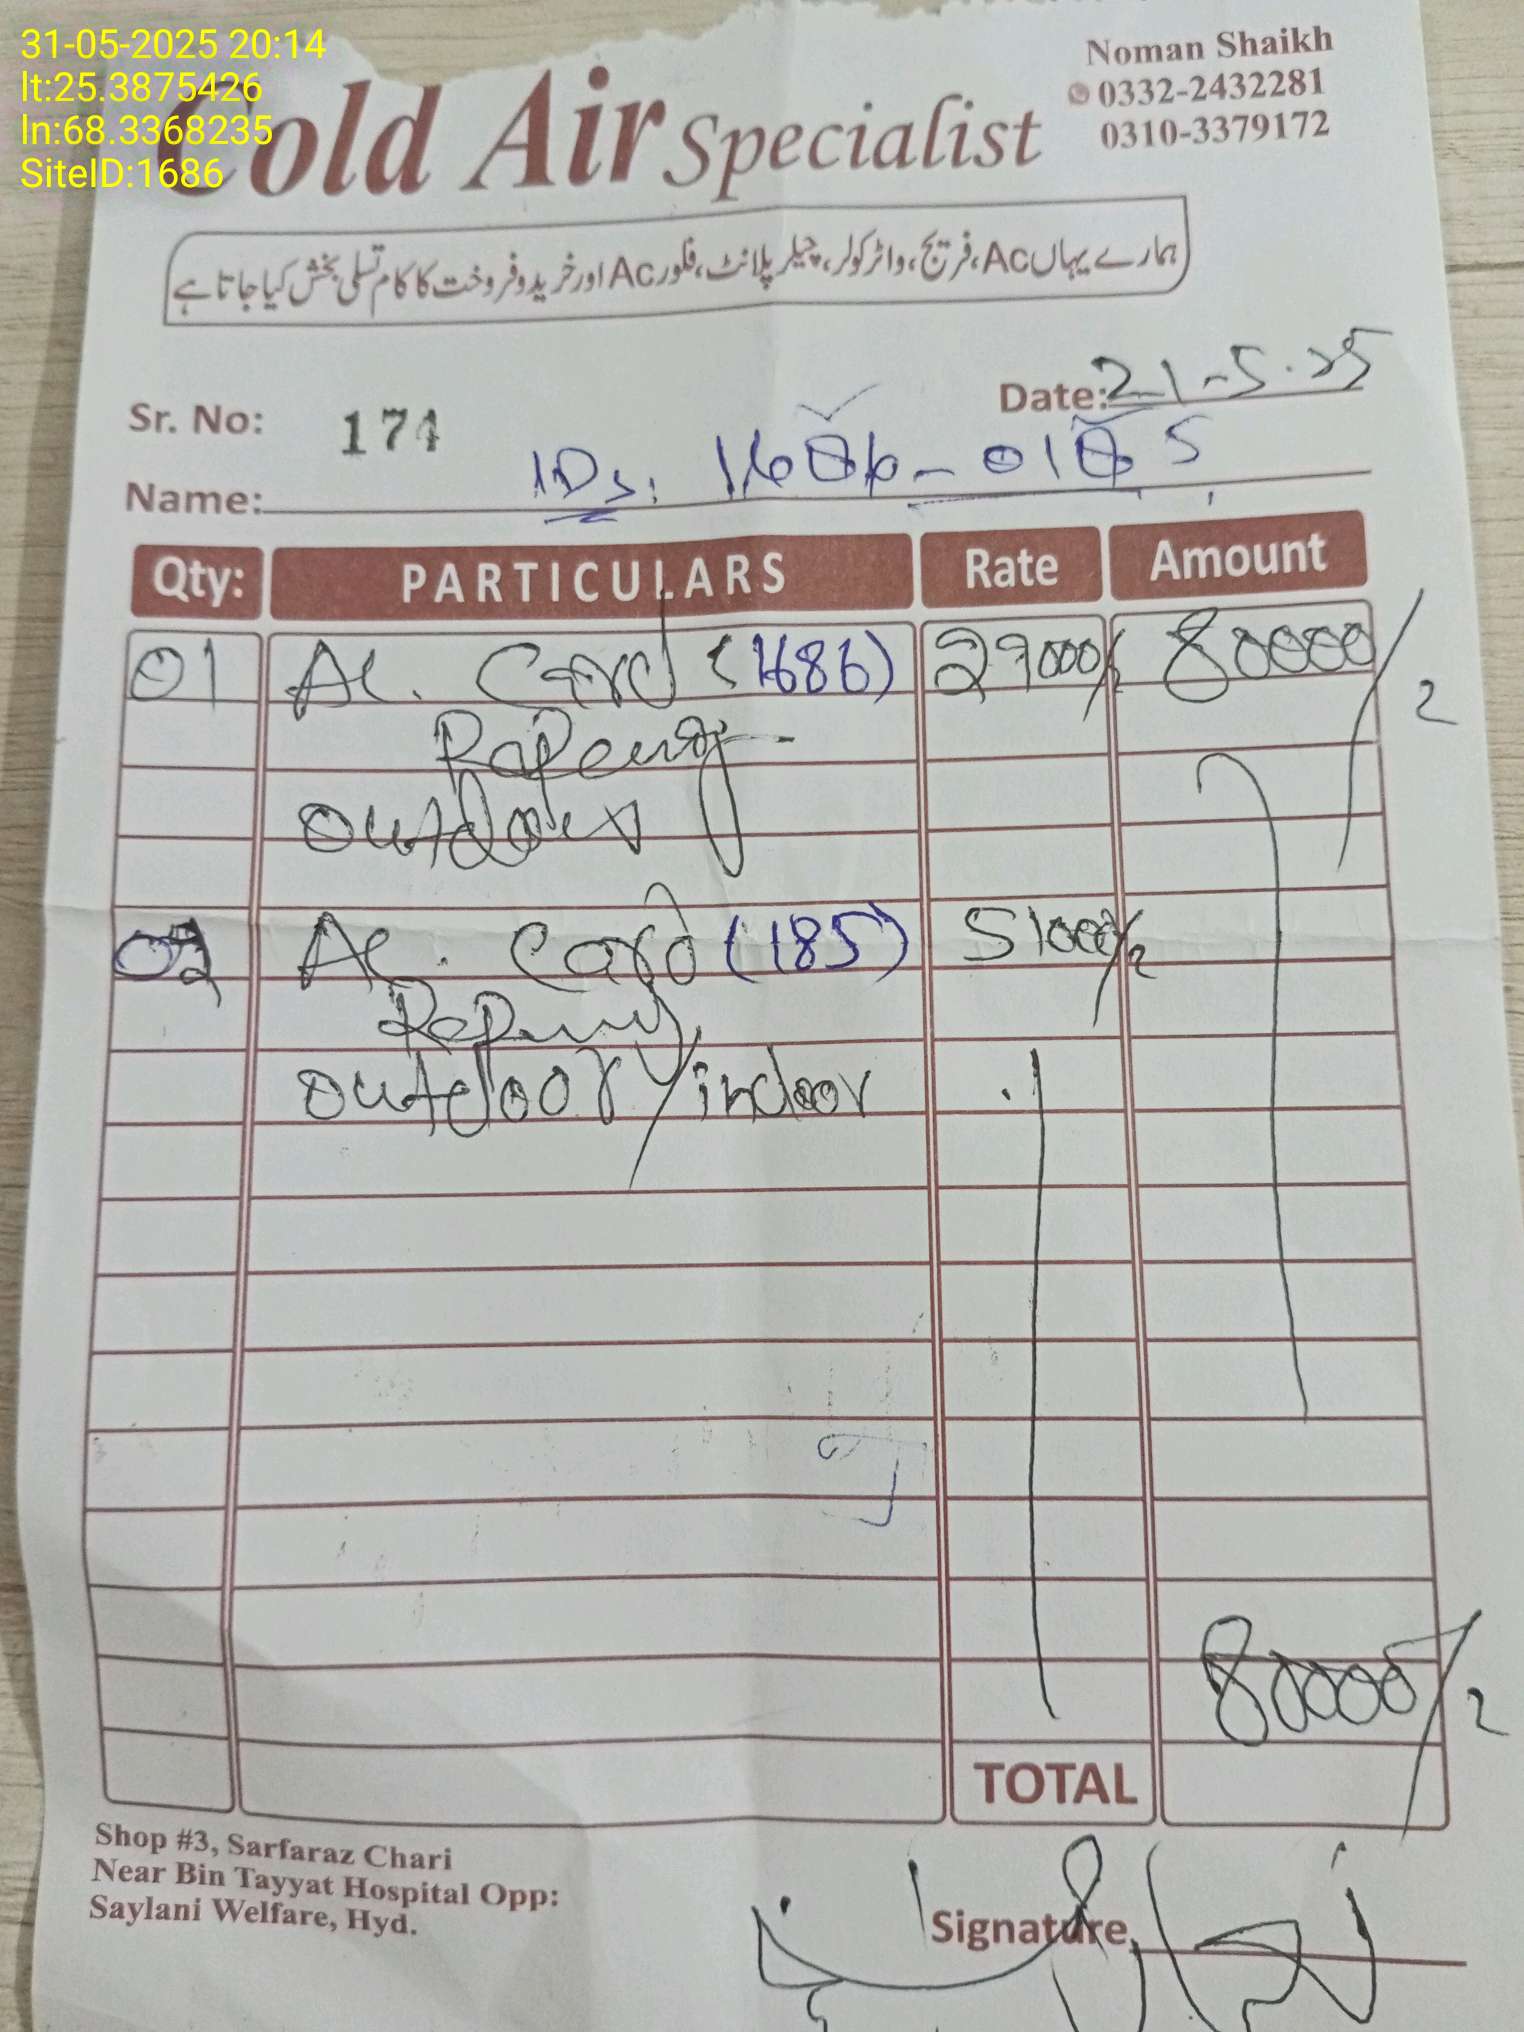 31-05-2025 20:14
lt:25.3875426
ln:68.3368235
SiteID:1686
Noman Shaikh
0332-2432281
0310-3379172
Cold Air Specialist
ہمارے یہاں Ac، فریج، واٹر کولر، چیلر پلانٹ، فلور Ac اور خرید و فروخت کا کام تسلی بخش کیا جاتا ہے
Date: 21-5-25
Sr. No: 174
Name: IDs: 1686 - 0185
Qty: PARTICULARS Rate Amount
01 Ac. Card (1686) 29000/2 80000/2
outdoor
02 Ac. Card (185) 51000/2
outdoor/indoor
80000/2
TOTAL
Shop #3, Sarfaraz Chari
Near Bin Tayyat Hospital Opp:
Saylani Welfare, Hyd.
Signature